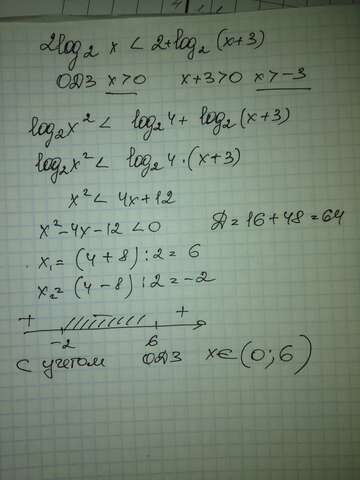 2log₂ x < 2+log₂ (x+3)
ОДЗ x>0 x+3>0 x>-3
log₂x² < log₂4 + log₂(x+3)
log₂x² < log₂4·(x+3)
x² < 4x+12
x²-4x-12<0 Д=16+48=64
x₁=(4+8):2=6
x₂=(4-8):2=-2
+ - +
-2 6
С учетом ОДЗ x∈(0;6)